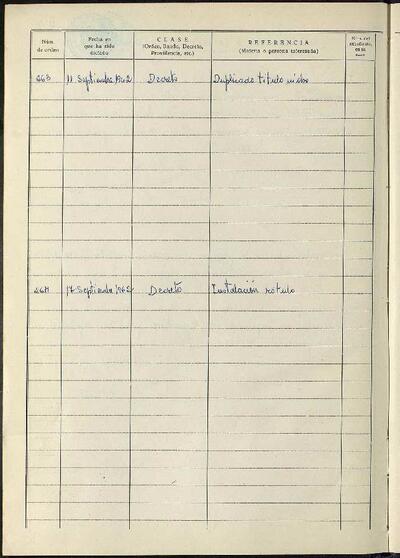 Núm. de orden
Fecha en que ha sido dictado
CLASE
(Orden, Bando, Decreto, Providencia, etc.)
REFERENCIA
(Materia o persona interesada)
11 Septiembre 1962 Decreto Duplicado título nicho
17 Septiembre 1962 Decreto Instalación rótulo